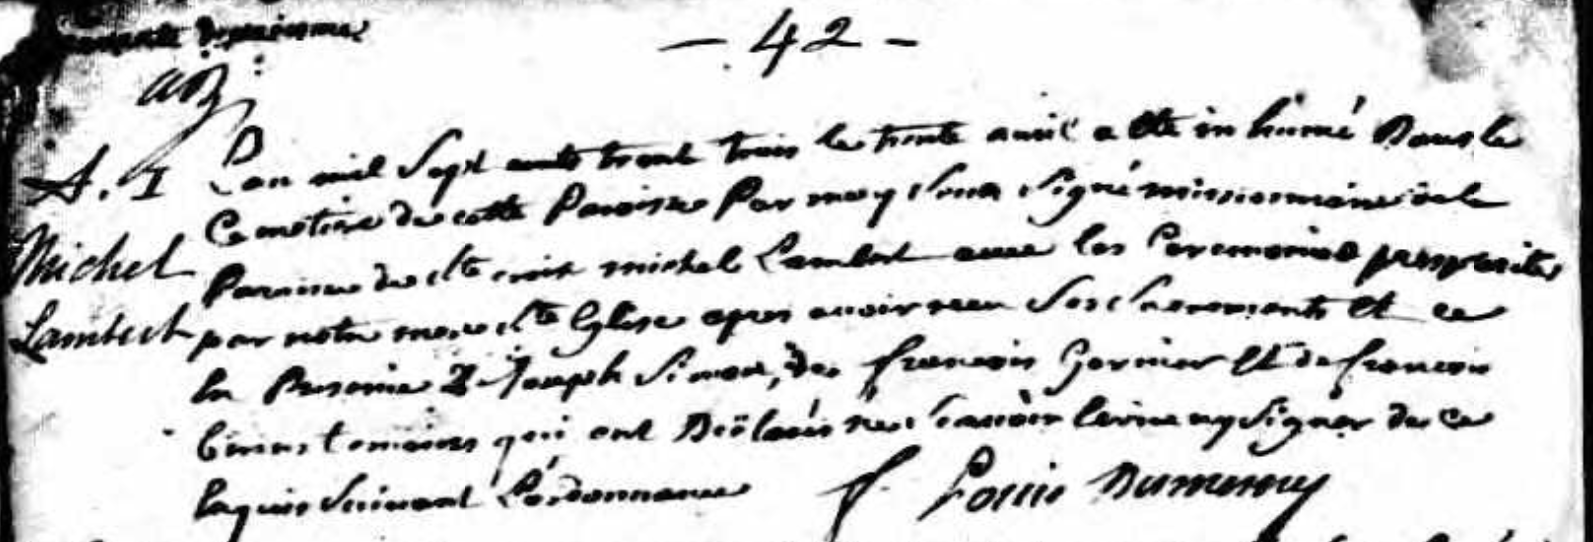 - 42 -
L'an mil sept cents trent trois le trente avril a ete in humé Dans le
Cemetiere de cette Paroisse Par moy sous signé missionnaire de la
S. I
Michel
Lambert
Paroisse de Ste croix michel Lambert avec les Ceremonies prescrites
par notre mere Ste Eglise apres avoir receu ses sacrements et ce
En Presence De Joseph Simon, de francois Garnier Et de francois
temoins qui ont Déclaré ne savoir Ecrire ny signer de ce
Enquis suivant L'ordonnance f. Louis